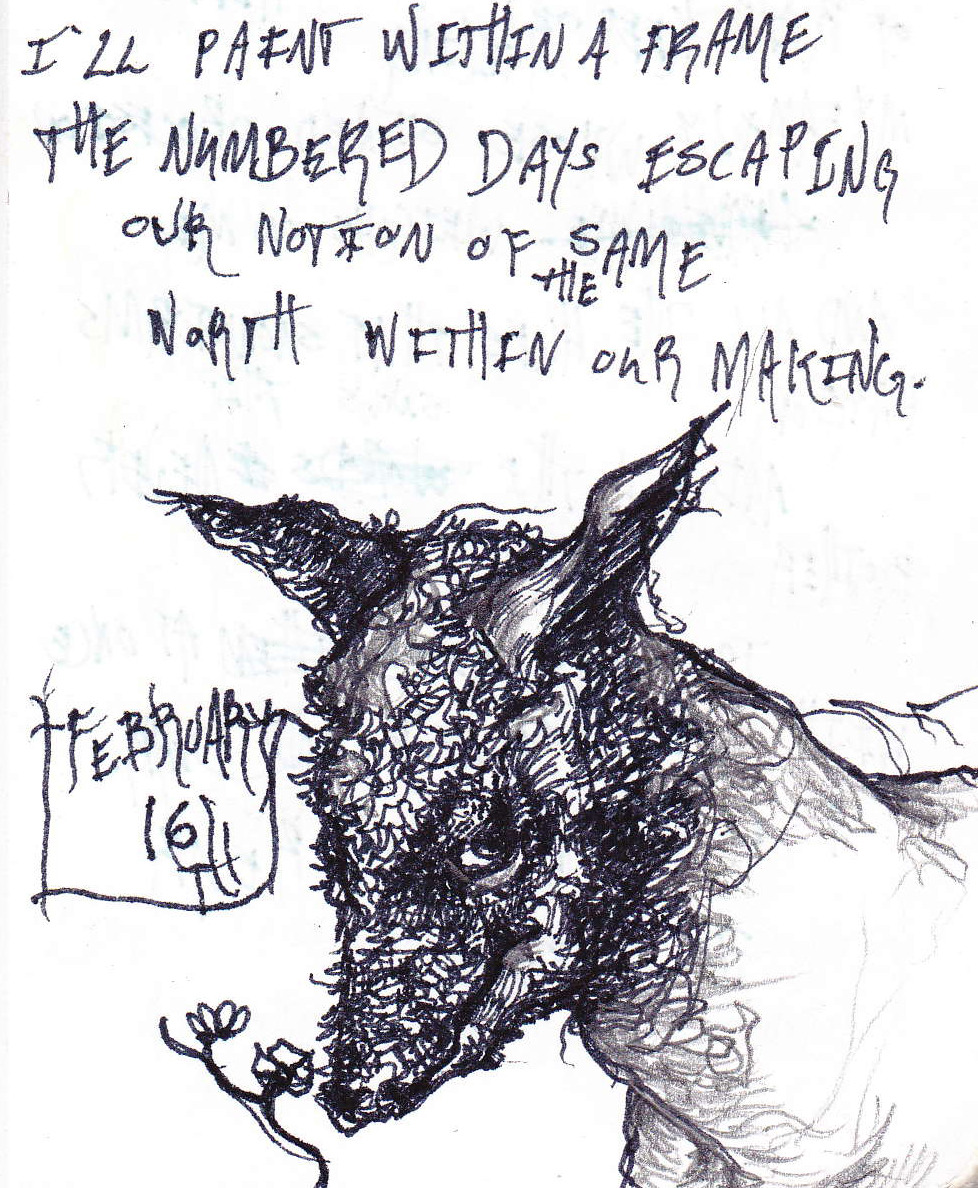 I'LL PAINT WITHIN A FRAME
THE NUMBERED DAYS ESCAPING
OUR NOTION OF THE SAME
NORTH WITHIN OUR MAKING.
FEBRUARY
16TH